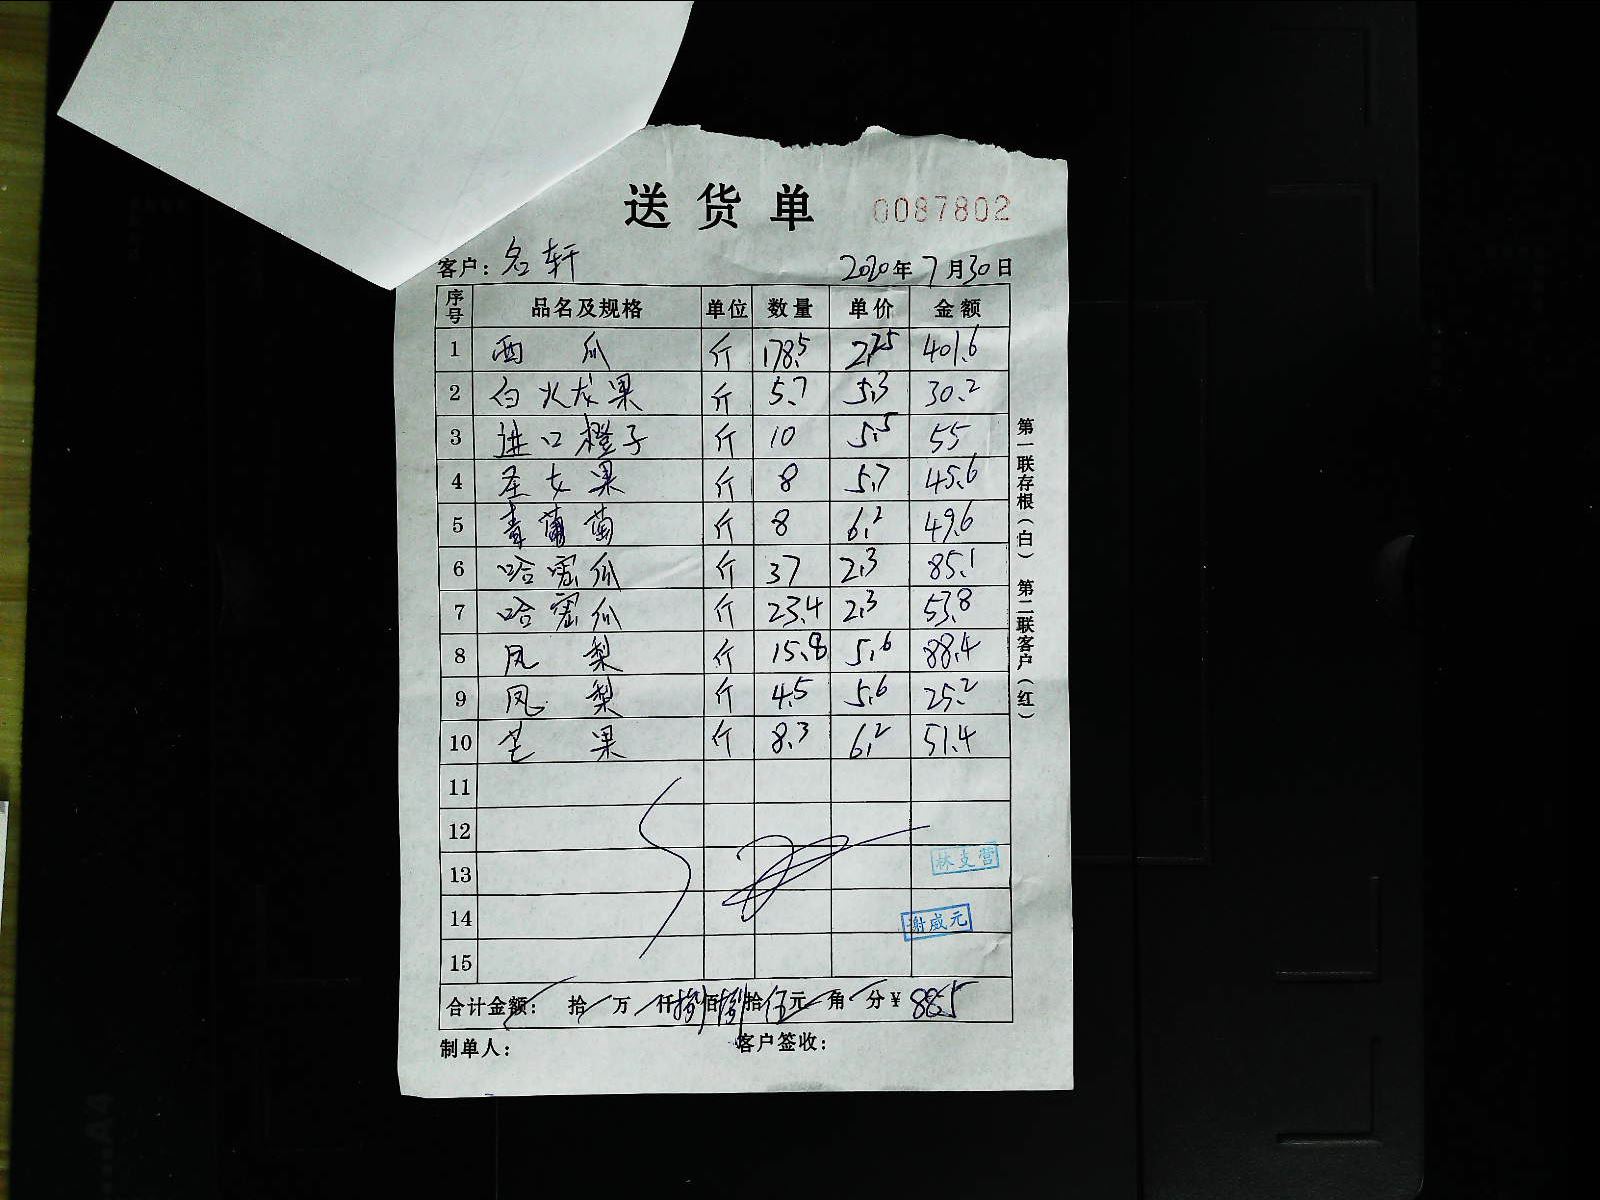 送货单 0087802
客户: 名轩 2020年7月30日
序号 品名及规格 单位 数量 单价 金额
1 西瓜 斤 178.5 2.25 401.6
2 白火龙果 斤 5.7 5.3 30.2
3 进口橙子 斤 10 5.5 55
4 圣女果 斤 8 5.7 45.6
5 青葡萄 斤 8 6.2 49.6
6 哈密瓜 斤 37 2.3 85.1
7 哈密瓜 斤 23.4 2.3 53.8
8 凤梨 斤 15.8 5.6 88.4
9 凤梨 斤 4.5 5.6 25.2
10 芒果 斤 8.3 6.2 51.4
11
12
13 林支营
14 谢威元
15
合计金额: 拾 万 仟捌佰捌拾伍元 角 分¥ 885
制单人: 客户签收:
第一联存根(白) 第二联客户(红)
A4